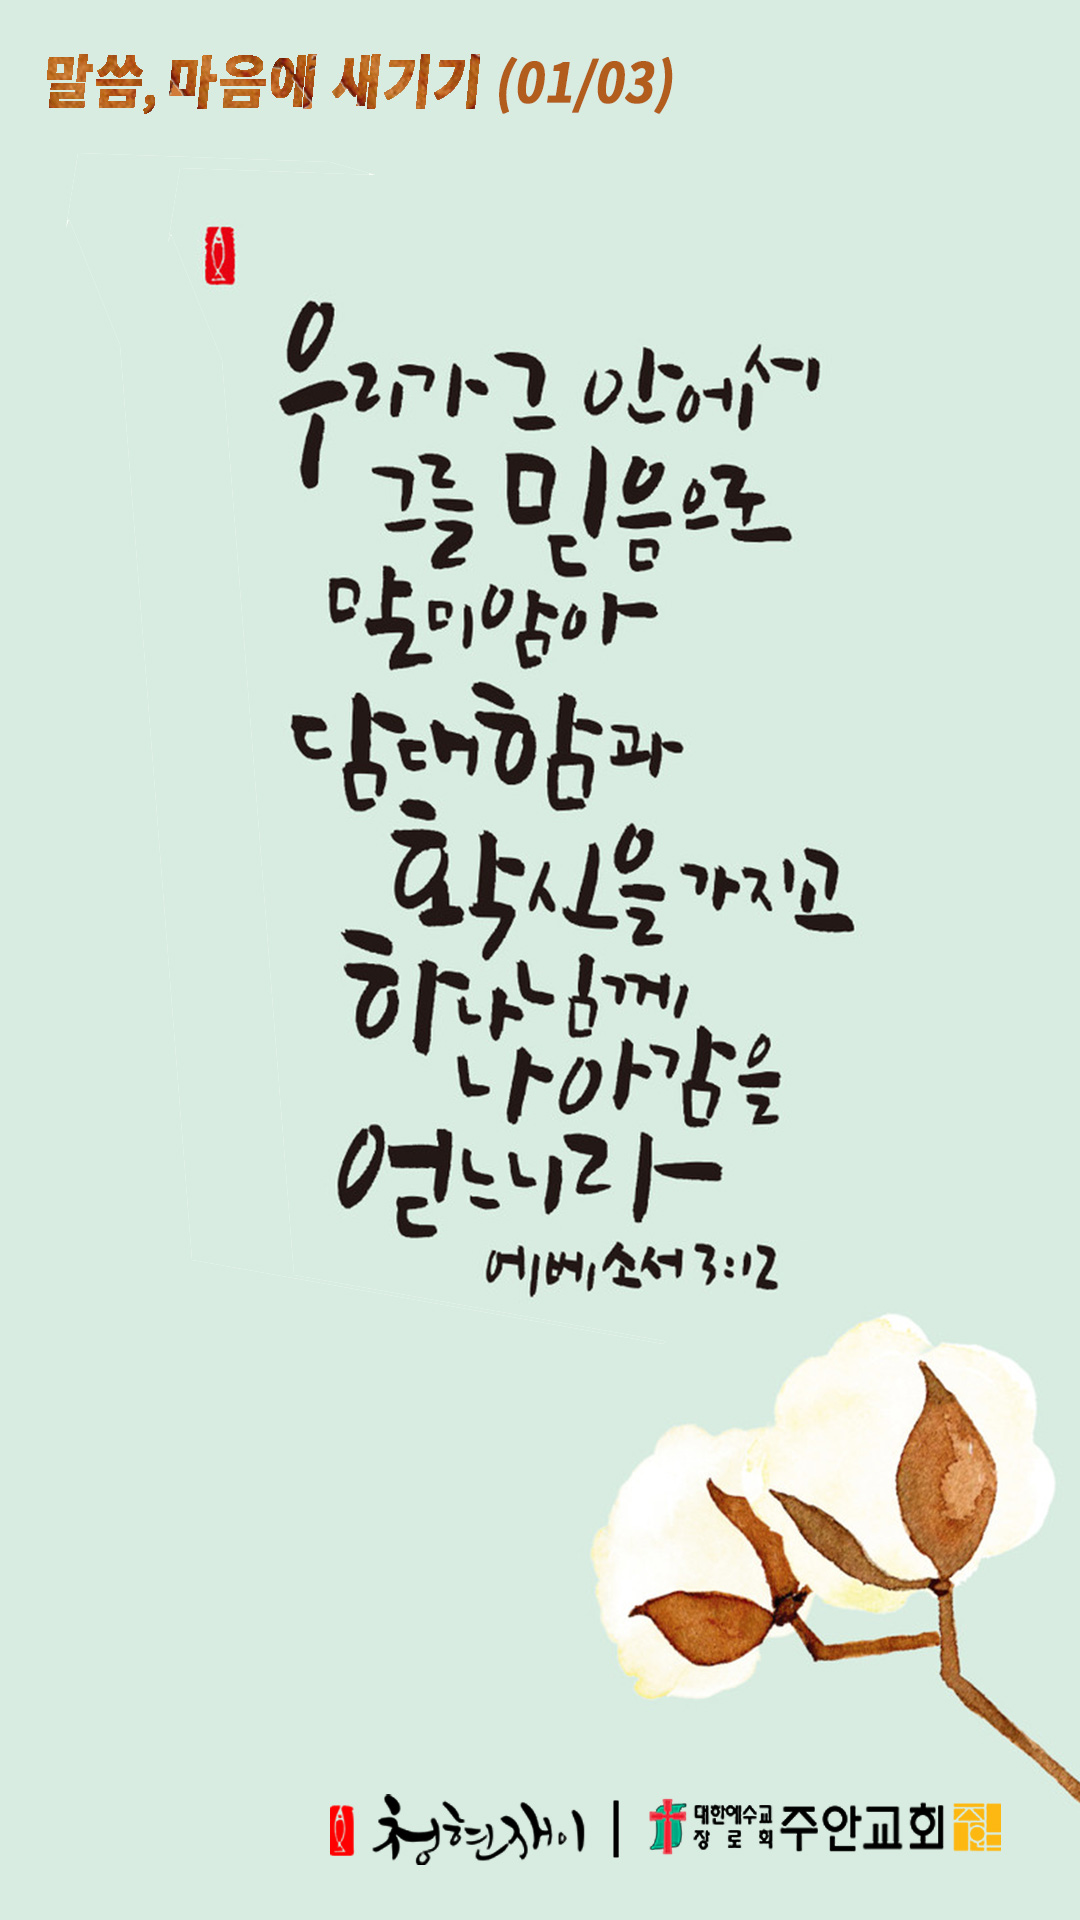 말씀, 마음에 새기기 (01/03)
우리가 그 안에서
그를 믿음으로
말미암아
담대함과
확신을 가지고
하나님께
나아감을
얻느니라
에베소서 3:12
청현재이 | 대한예수교장로회 주안교회 주안